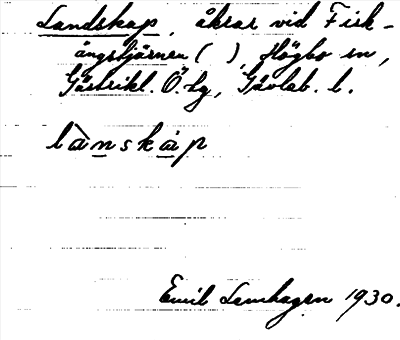 Landskap, åkrar vid Fisk-
ängstjärnen ( ), Högbo sn,
Gästrikl. Ö. tg, Gävleb. l.
lànskáp
Emil Lemhagen 1930.